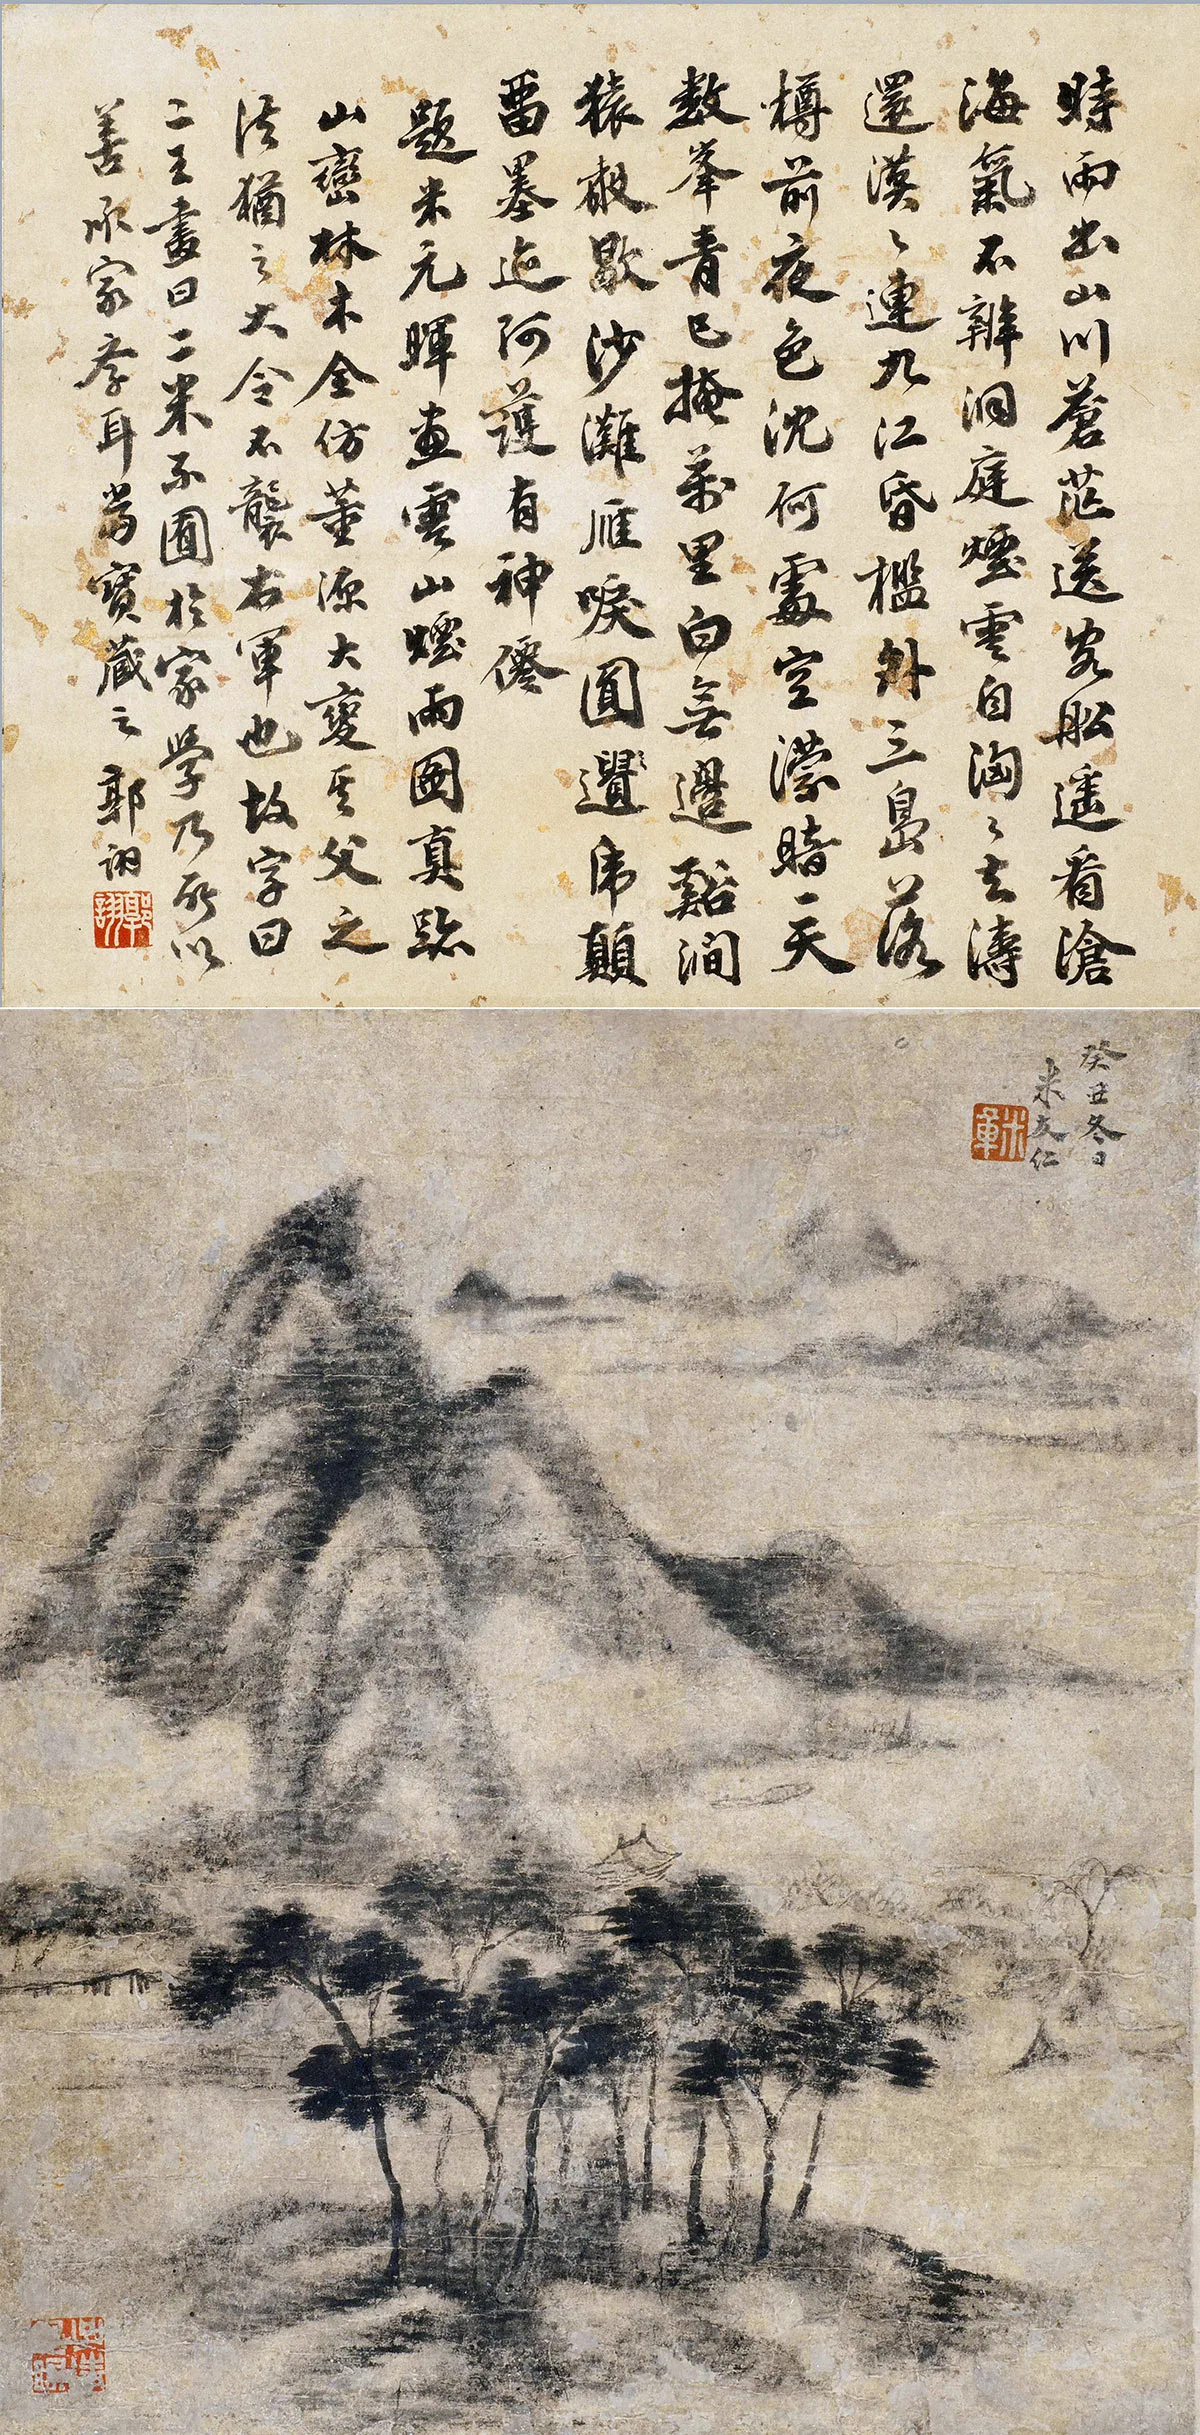 時雨出山川蒼茫送客船遥看滄
海氣不辨洞庭煙雲自洶〻去濤
還漠〻連九江昏檻外三島落
樽前夜色沈何處空濛暗一天
數峯青已掩萬里白無邊谿澗
猿聲歇沙灘雁唳圓還
留墨迹呵護有神僊
題米元暉畫雲山煙雨圖真跡
山巒林木全仿董源大變其父之
法猶之大令不襲右軍也故字曰
二王畫曰二米不囿於家學乃所以
善承家學耳當寶藏之郭詡
郭詡
癸丑冬日
米友仁